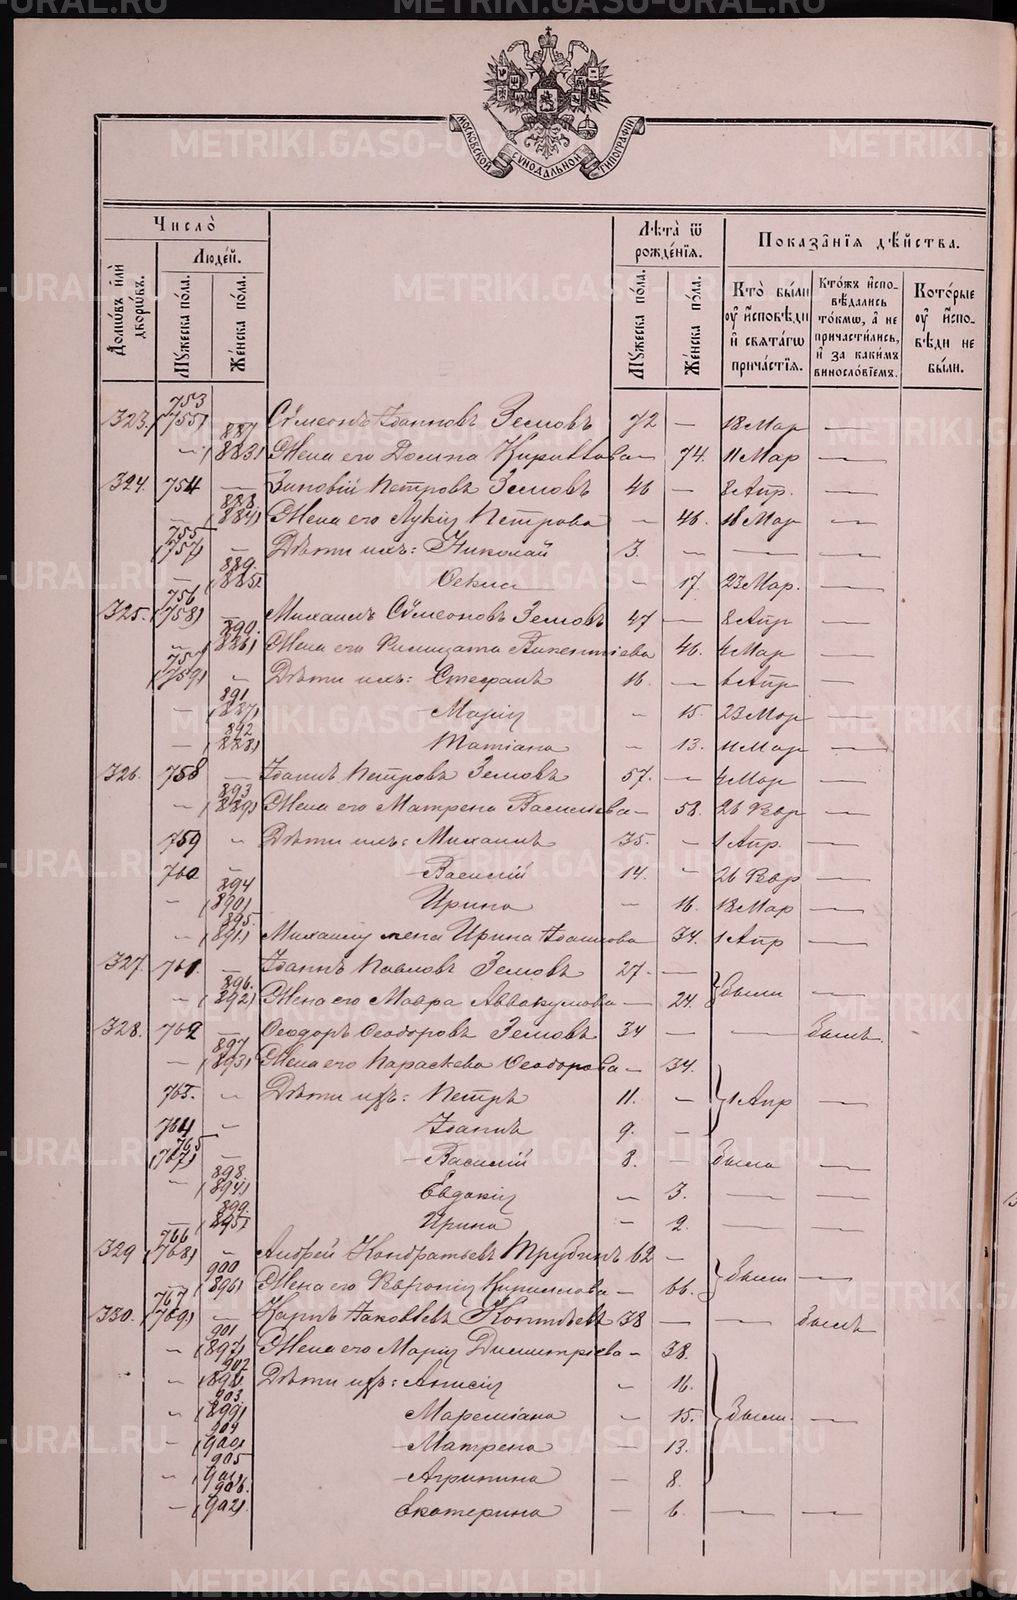 METRIKI.GASO-URAL.RU
МОСКОВСКОЙ СѴНОДАЛЬНОЙ ТИПОГРАФІИ
Число̀
Людей.
Домѡвъ илѝ дворѡвъ.
Мꙋжеска по́ла.
Же́нска по́ла.
Лѣта̀ ѿ рожде́нїѧ.
Мꙋжеска по́ла.
Же́нска по́ла.
Показа̑нїѧ дѣ́йства.
Кто̀ бы́ли оу҆ и҆сповѣди и҆ свѧта́гѡ прича́стїѧ.
Кто́жъ и҆спо- вѣдались то́кмѡ, а҆ не причасти́лись, и҆ за каки́мъ винослѡ́вїемъ.
Кото́рые оу҆ и҆спо- вѣди не бы́ли.
323. 753 (755) Сѷмеонъ Іоанновъ Земовъ 72 — 18 Мар —
— 887 (883) Жена его Домна Кириллова — 74. 11 Мар —
324. 754 — Зиновій Петровъ Земовъ 46 — 8 Апр. —
— 888 (884) Жена его Лукія Петрова — 46. 18 Мар —
755 (757) — Дѣти ихъ: Николай 3. — — —
— 889. (885) Ѳекла — 17. 23 Мар. —
325. 756 (758) — Михаилъ Сѷмеоновъ Земовъ 47 — 8 Апр —
— 890. (886) Жена его Филицата Викентіева 46. 4 Мар —
757 (759) — Дѣти ихъ: Стефанъ 16. — 6 Апр —
— 891 (887) Марія — 15. 23 Мар —
— 892 (888) Татіана — 13. 11 Мар —
326. 758 — Іоаннъ Петровъ Земовъ 57. — 4 Мар —
— 893 (889) Жена его Матрена Васильева — 58. 26 Фвр —
759 — Дѣти ихъ: Михаилъ 35. — 1 Апр. —
760 Василій 14. — 26 Фвр —
— 894 (890) Ирина — 16. 18 Мар —
— 895. (891) Михаилу жена Ирина Іоаннова 34. 1 Апр —
327. 761. — Іоаннъ Павловъ Земовъ 27. —
— 896. (892) Жена его Мавра Аввакумова — 24. были —
328. 762 — Ѳеодоръ Ѳеодоровъ Земовъ 34 — — былъ.
— 897 (893) Жена его Параскева Ѳеодорова — 34.
763. — Дѣти ихъ: Петръ 11. — 1 Апр —
764 — Іоаннъ 9. —
765 (767) — Василій 8. — была —
— 898. (894) Евдокія — 3. — —
— 899. (895) Ирина — 2. — —
329 766 (768) — Андрей Кондратьевъ Трубинъ 62 —
— 900 (896) Жена его Евгенія Кириллова — 66. были —
330. 767 (769) — Карпъ Іаковлевъ 38 — — былъ
— 901 (897) Жена его Марія Димитріева — 38.
— 902 (898) Дѣти ихъ: Анисія — 16.
— 903 (899) Мареміана — 15. были. —
— 904 (900) Матрена — 13.
— 905 (901) Агрипина — 8.
— 906. (902) Екатерина — 6. — —